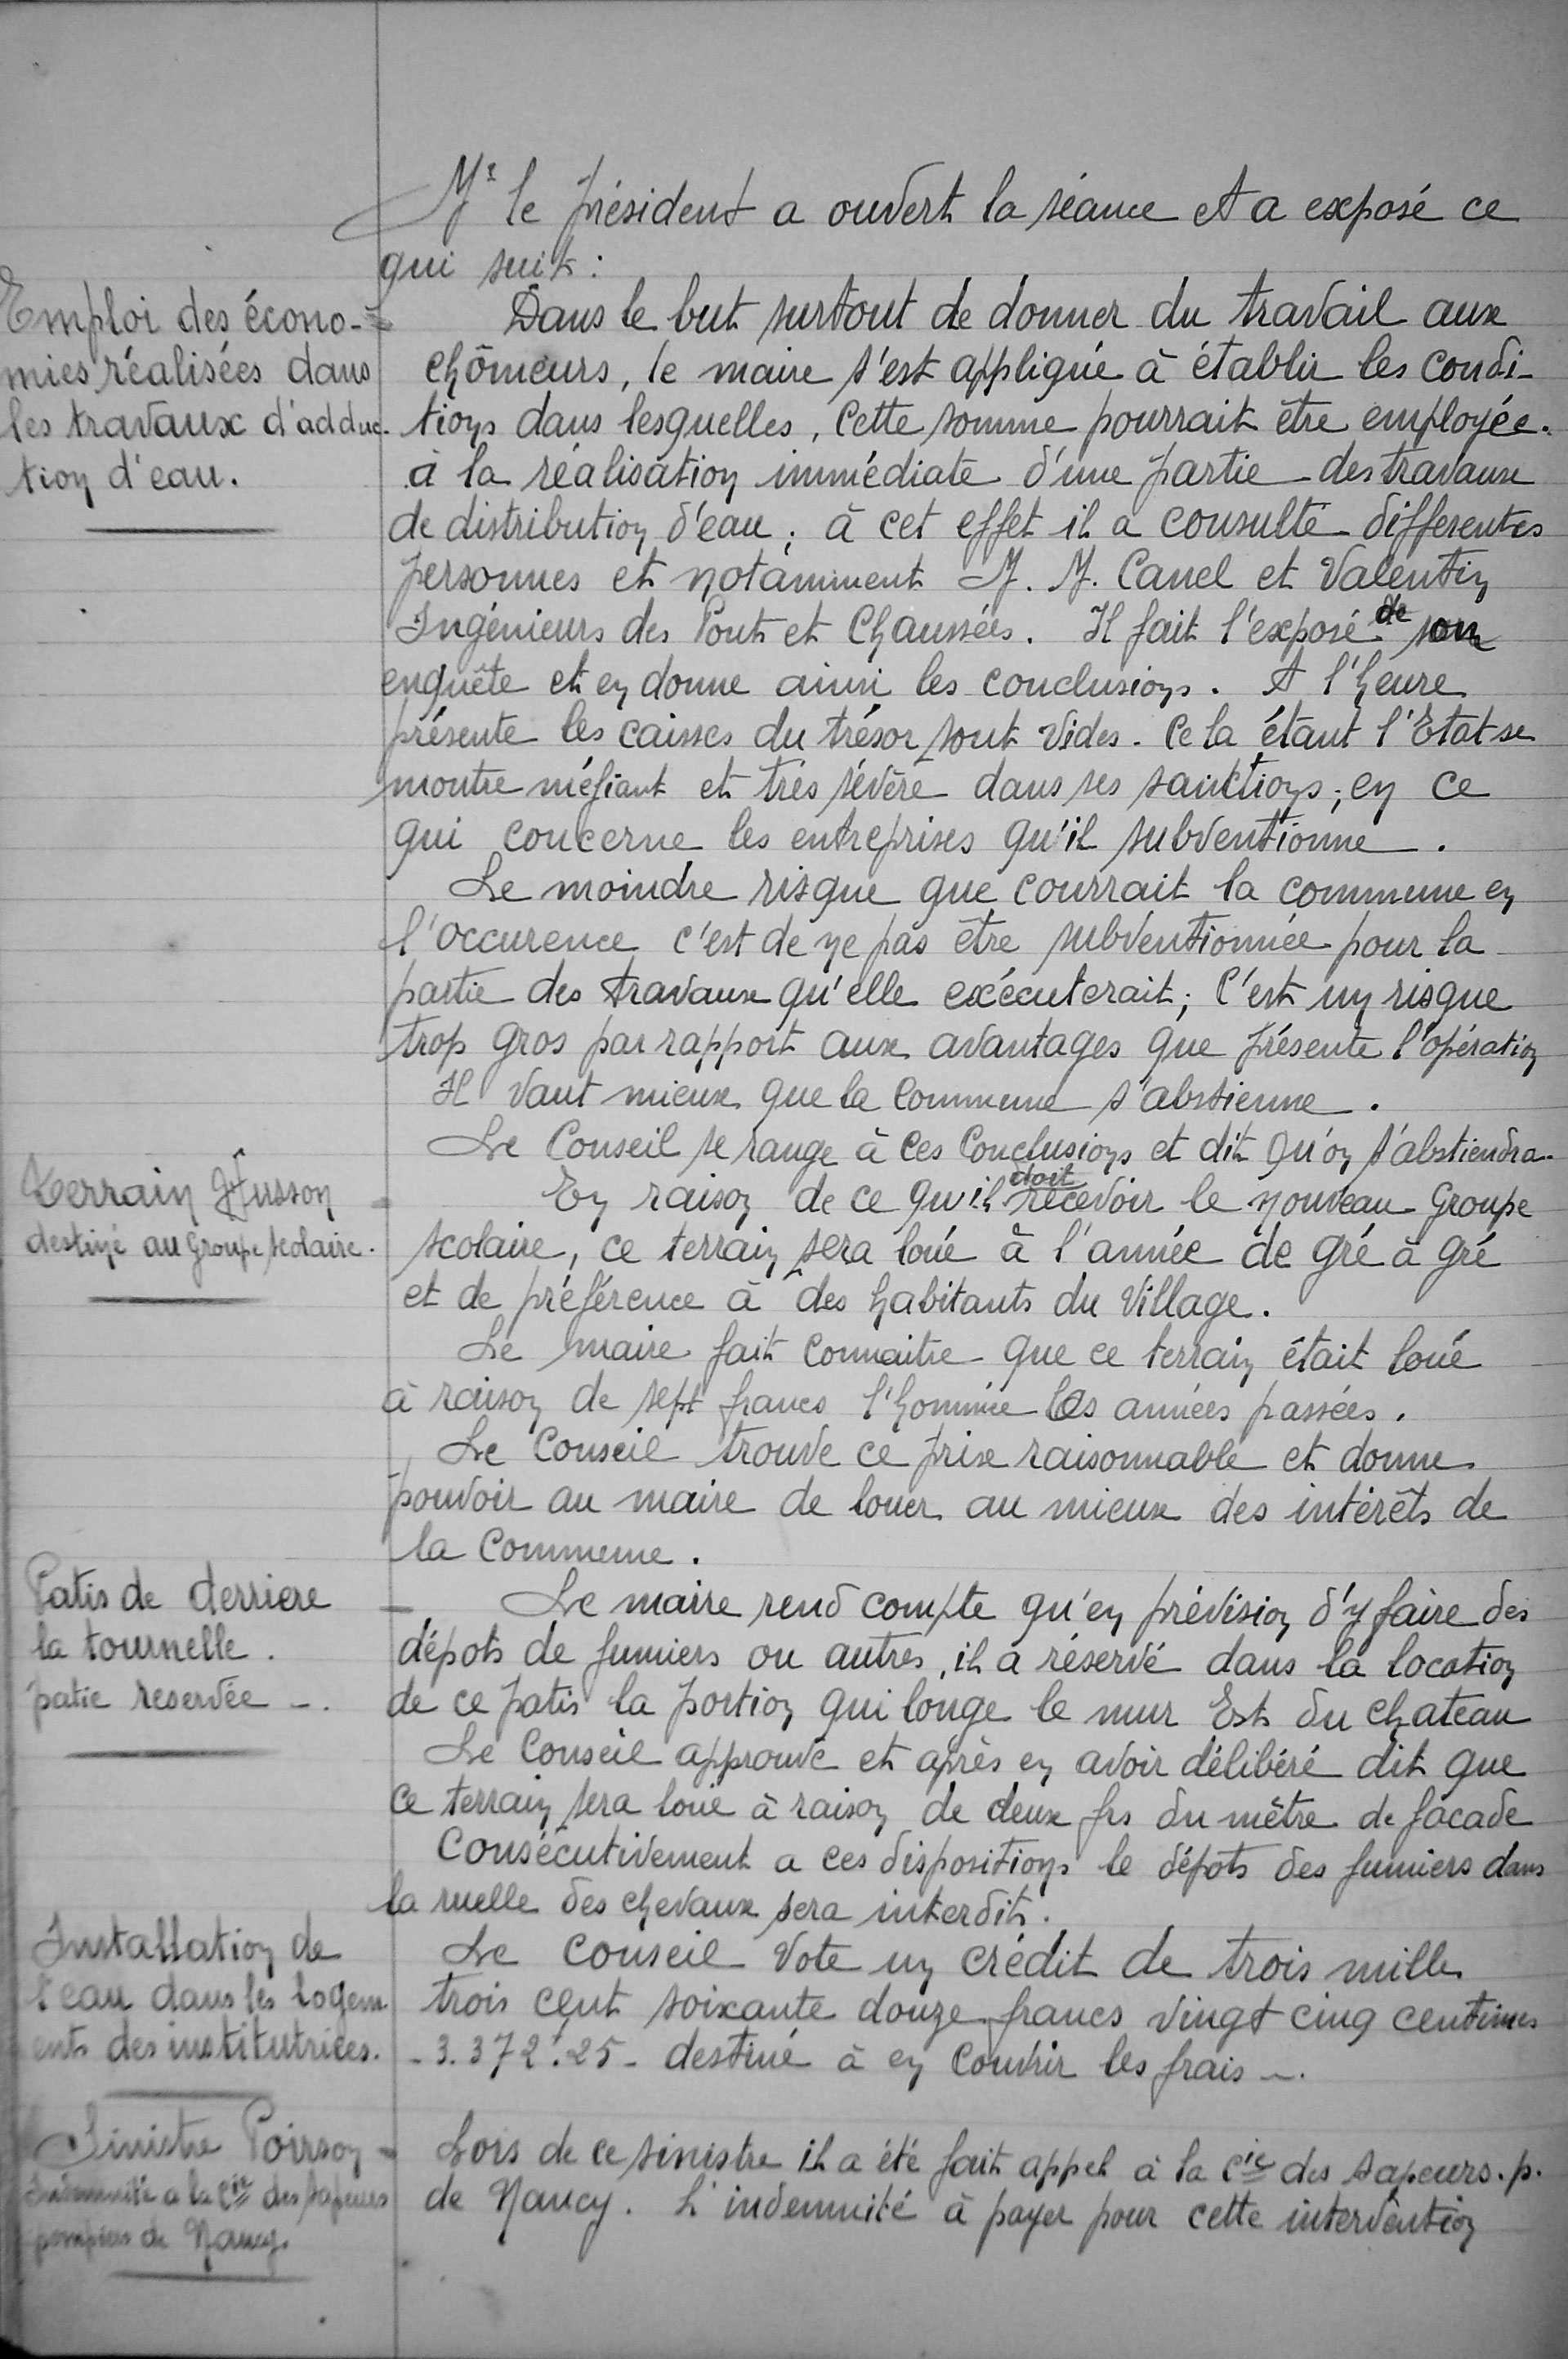 Mr le président a ouvert la séance et a exposé ce
qui suit :
Emploi des écono-
mies réalisées dans
les travaux d'adduc-
tion d'eau.
Dans le but surtout de donner du travail aux
chômeurs, le maire s'est appliqué à établir les condi-
tions dans lesquelles, cette somme pourrait être employée.
à la réalisation immédiate d'une partie des travaux
de distribution d'eau ; à cet effet il a consulté differentes
personnes et notamment M. M. Canel et Valentin
Ingénieurs des Ponts et Chaussées. Il fait l'exposé de son
enquête et en donne ainsi les conclusions. A l'heure
présente les caisses du trésor sont vides. Cela étant l'Etat se
montre méfiant et très sévère dans ses sanctions, en ce
qui concerne les entreprises qu'il subventionne.
Le moindre risque que courrait la commune en
l'occurence c'est de ne pas être subventionnée pour la
partie des travaux qu'elle exécuterait ; C'est un risque
trop gros par rapport aux avantages que présente l'opération
Il vaut mieux que la Commune s'abstienne.
Le Conseil se range à ces Conclusions et dit qu'on s'abstiendra.
Terrain Husson
destiné au Groupe scolaire.
En raison de ce qu'il doit recevoir le nouveau Groupe
scolaire, ce terrain sera loué à l'année de gré à gré
et de préférence à des habitants du Village.
Le maire fait connaitre que ce terrain était loué
à raison de sept francs l'hommée les années passées.
Le Conseil trouve ce prix raisonnable et donne
pouvoir au maire de louer au mieux des intérêts de
la Commune.
Patis de derriere
la tournelle.
patie reservée -.
Le maire rend compte qu'en prévision d'y faire des
dépots de fumiers ou autres, il a réservé dans la location
de ce patis la portion qui longe le mur Est du chateau
Le Conseil approuve et après en avoir délibéré dit que
ce terrain sera loué à raison de deux frs du mètre de facade
Consécutivement a ces dispositions le dépots des fumiers dans
la ruelle des chevaux sera interdit.
Installation de
l'eau dans les logem
ents des institutrices.
Le Conseil Vote un crédit de trois mille
trois cent soixante douze francs vingt cinq centimes
- 3.372f.25 - destiné à en couvrir les frais -.
Sinistre Poirson
Indemnité a la Cie des sapeurs
pompiers de Nancy.
Lors de ce sinistre il a été fait appel à la Cie des sapeurs. p.
de Nancy. L'indemnité à payer pour cette intervention